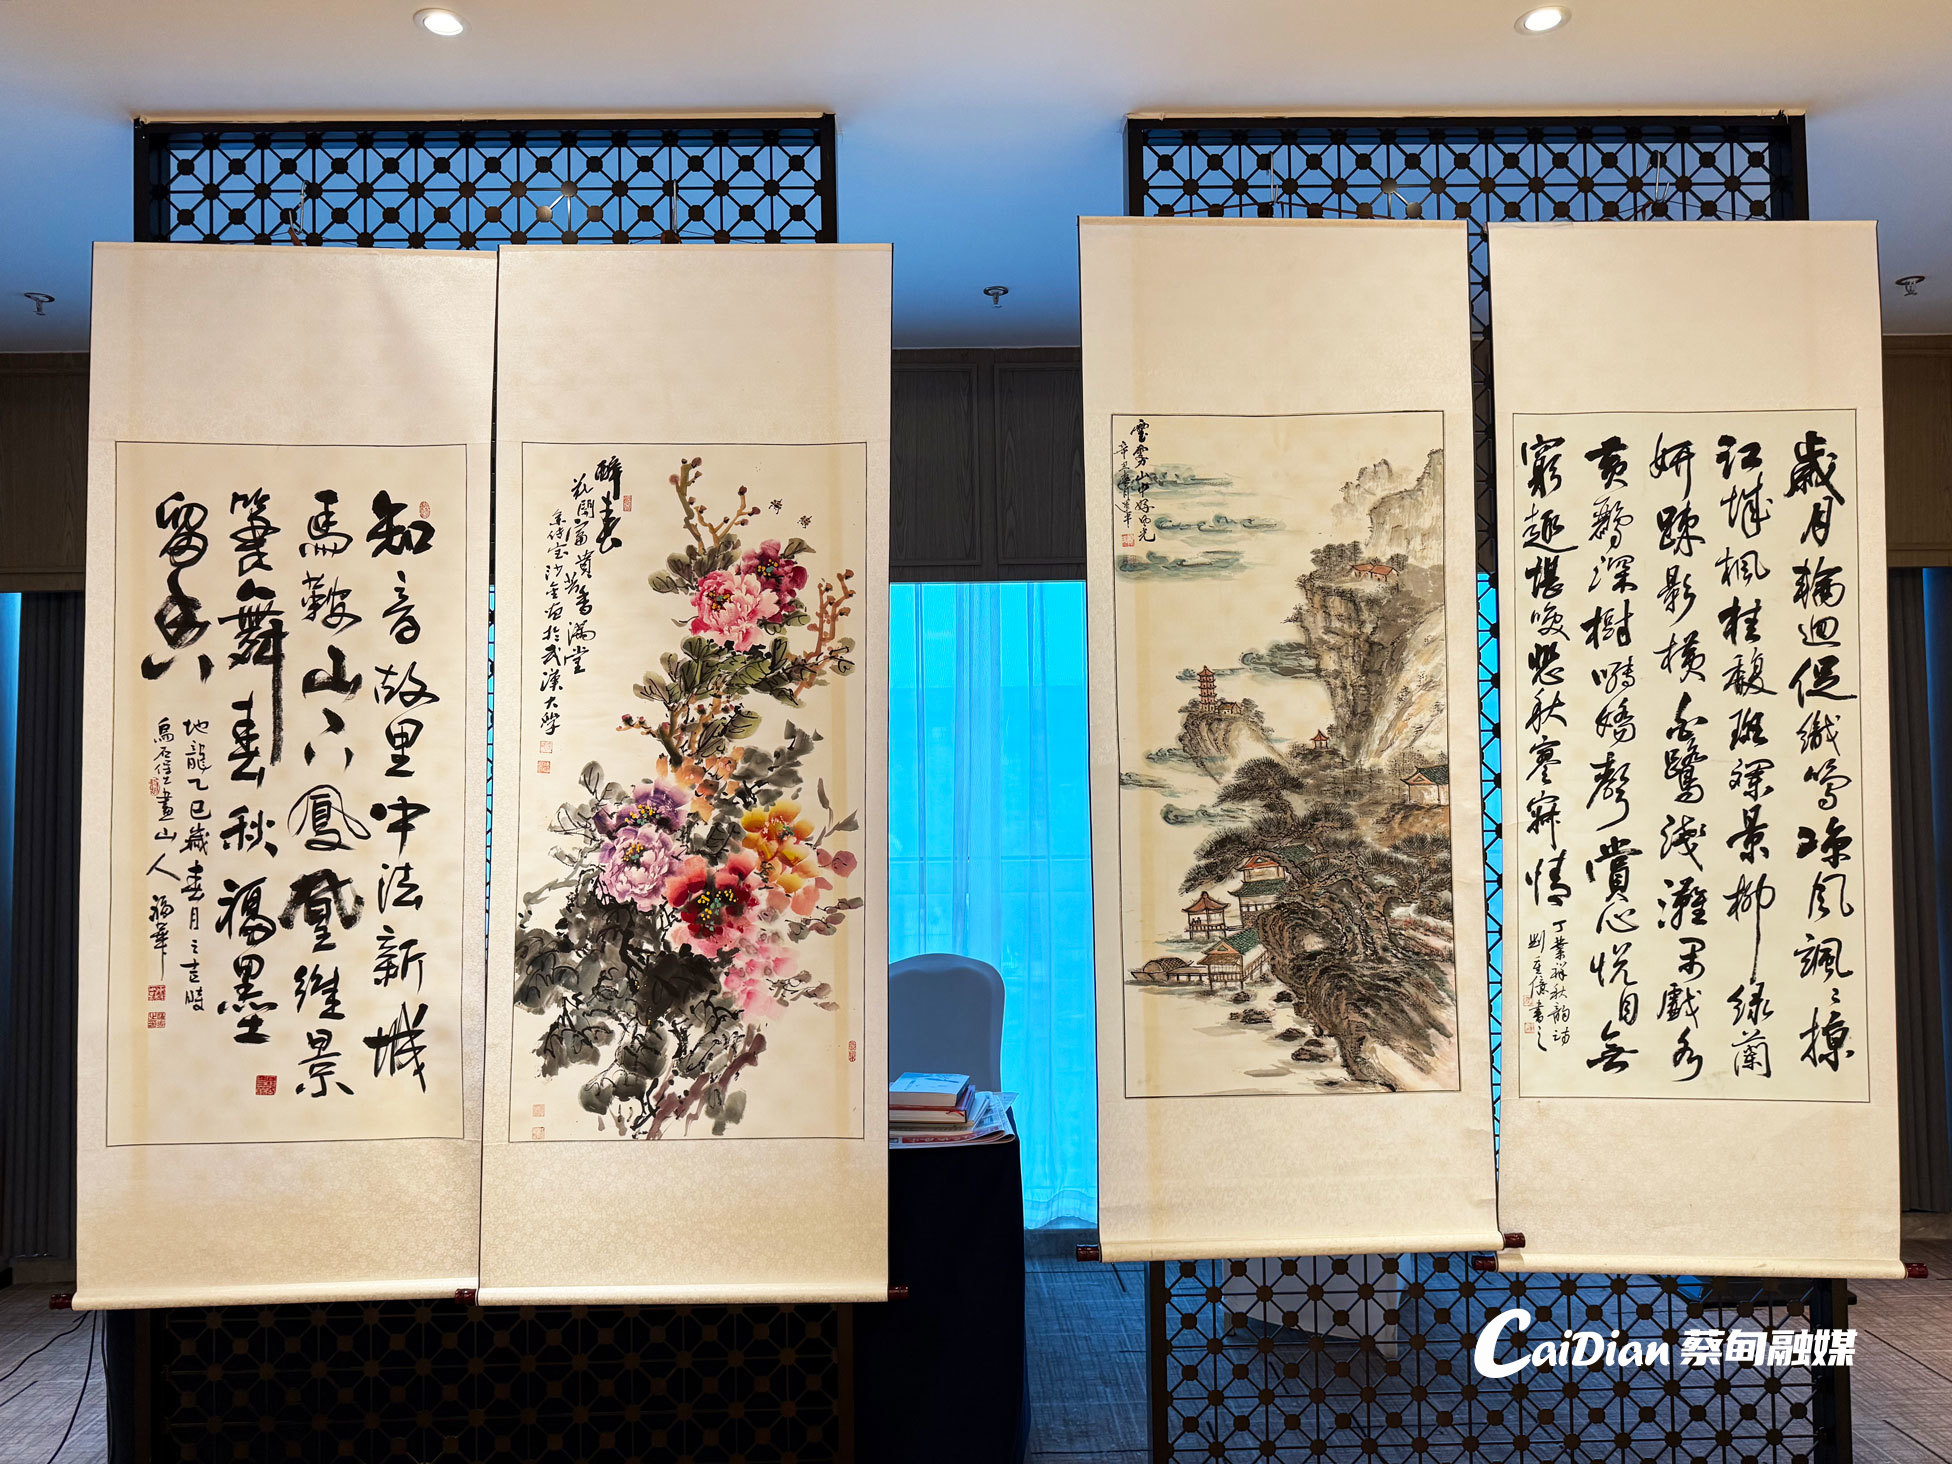 知音故里中法新城
馬鞍山下鳳凰維景
筆舞春秋福墨
留香
地龍乙巳歲春月之吉時
畫山人
福華
醉春
花開富貴芳香滿堂
於武漢大學
雲霧山中好風光
歲月輪迴促織鳴琼風颯颯掠
江城楓桂馥斑斕景柳綠蘭
妍疎影橫白鷺淺灘早戲水
黄鸝深樹囀嬌聲賞心悦目無
窮趣堪唤愁秋寥寂情
丁業祥秋韵詩
CaiDian 蔡甸融媒